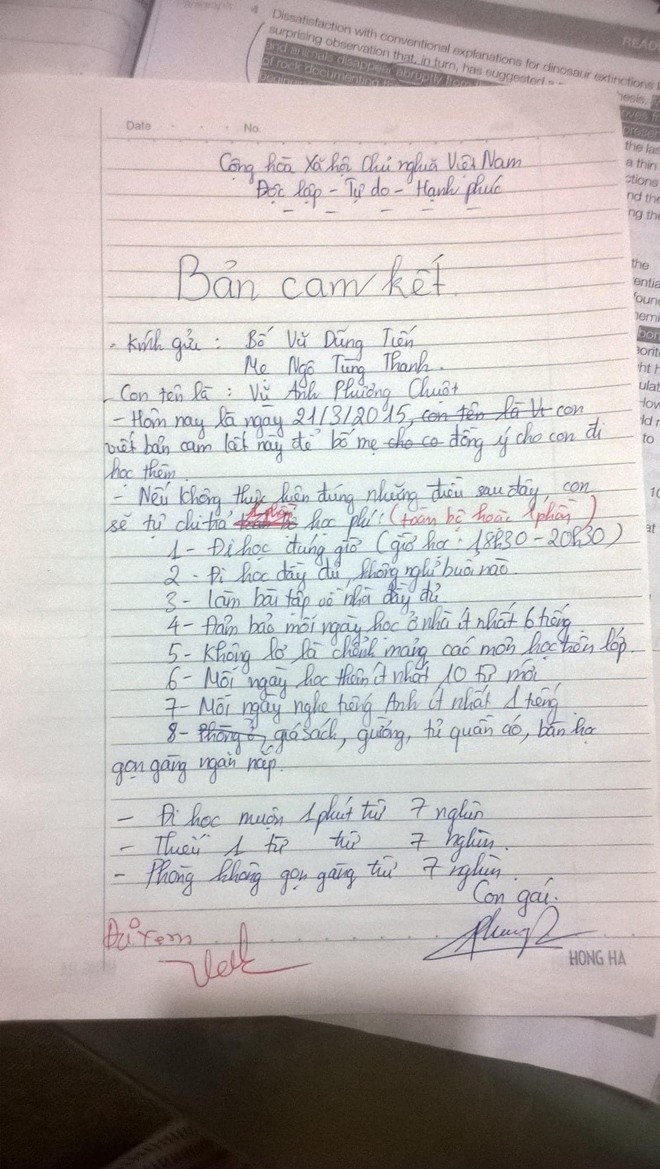 4 Dissatisfaction with conventional explanations for dinosaur extinctions
surprising observation that, in turn, has suggested a
and animals disappear abruptly from
of rock documenting
READ
Date No.
Cộng hòa Xã hội Chủ nghĩa Việt Nam
Độc lập - Tự do - Hạnh phúc
Bản cam kết
- Kính gửi : Bố Vũ Dũng Tiến
Mẹ Ngô Tùng Thanh.
- Con tên là : Vũ Anh Phương Chuột
- Hôm nay là ngày 21/3/2015, con tên là V con
viết bản cam kết này để bố mẹ cho co đồng ý cho con đi
học thêm.
- Nếu không thực hiện đúng những điều sau đây, con
sẽ tự chi trả 1 phần học phí: (toàn bộ hoặc 1 phần)
1 - Đi học đúng giờ (giờ học : 18h30 - 20h30)
2 - Đi học đầy đủ, không nghỉ buổi nào.
3 - Làm bài tập về nhà đầy đủ
4 - Đảm bảo mỗi ngày học ở nhà ít nhất 6 tiếng
5 - Không lơ là chểnh mảng các môn học trên lớp.
6 - Mỗi ngày học thêm ít nhất 10 từ mới
7 - Mỗi ngày nghe tiếng Anh ít nhất 1 tiếng.
8 - Phòng ở, giá sách, gương, tủ quần áo, bàn học
gọn gàng ngăn nắp.
- Đi học muộn 1 phút trừ 7 nghìn
- Thiếu 1 từ trừ 7 nghìn.
- Phòng không gọn gàng trừ 7 nghìn.
Con gái.
Đã xem
HONG HA